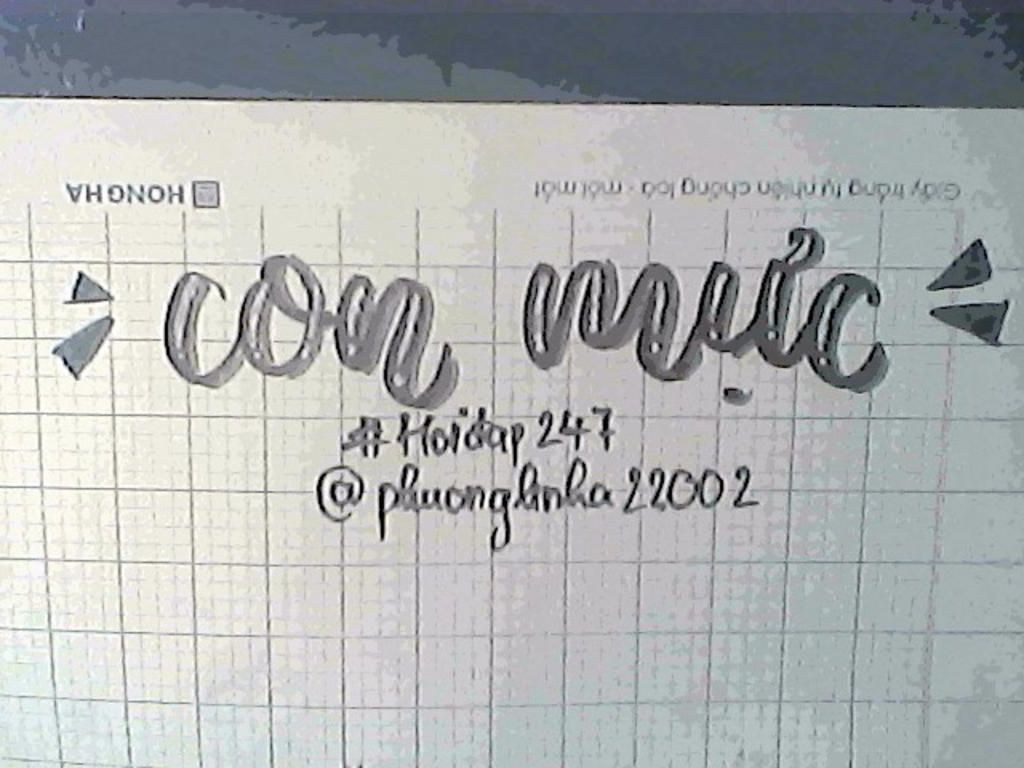 HONG HA
Giấy trắng tự nhiên chống loá - mỏi mắt
con mực
#Hoidap247
@phuonglinha22002